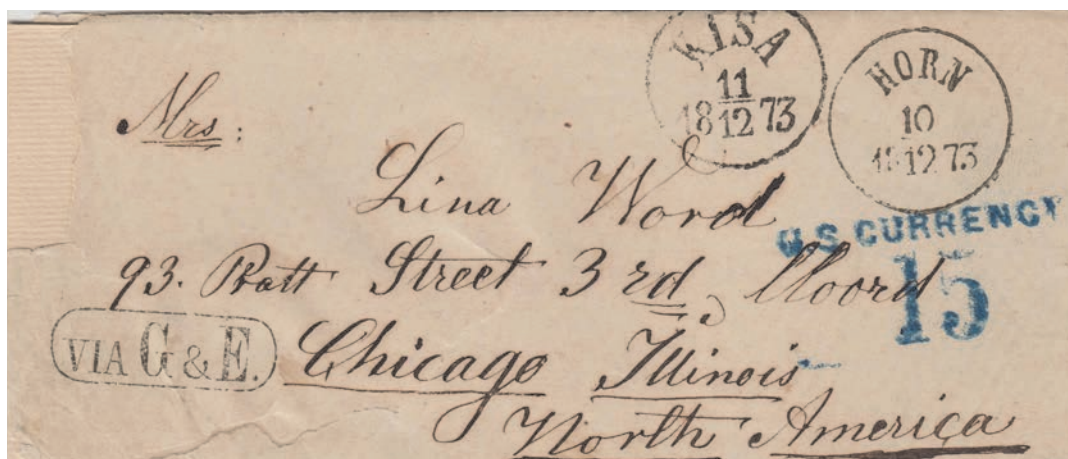 KISA
11
18 12 73
HORN
10
18 12 73
Mrs:
Lina Word
U.S. CURRENCY
15
93. Pratt Street 3 rd, lloord
VIA G & E.
Chicago Illinois
North America